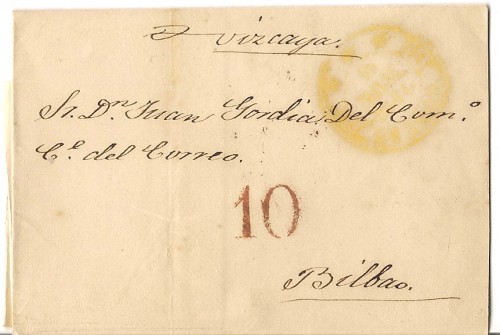 Vizcaya.
Sr. Dn. Juan Gordia, Del Como.
Ce. del Correo.
10
Bilbao.